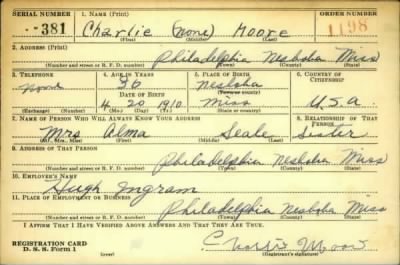 SERIAL NUMBER 1. NAME (Print) ORDER NUMBER
381 Charlie (none) Moore 1198
(First) (Middle) (Last)
2. ADDRESS (Print)
Philadelphia Neshoba Miss
(Number and street or R. F. D. number) (Town) (County) (State)
3. TELEPHONE 4. AGE IN YEARS 5. PLACE OF BIRTH 6. COUNTRY OF CITIZENSHIP
none Neshoba
DATE OF BIRTH
4 20 1910 Miss U.S.A.
(Exchange) (No.) (Mo.) (Day) (Yr.) (State or country)
7. NAME OF PERSON WHO WILL ALWAYS KNOW YOUR ADDRESS 8. RELATIONSHIP OF THAT PERSON
Mrs Alma Seale Sister
(Mr., Mrs., Miss) (First) (Middle) (Last)
9. ADDRESS OF THAT PERSON
Philadelphia Neshoba Miss
(Number and street or R. F. D. number) (Town) (County) (State)
10. EMPLOYER'S NAME
Hugh Ingram
11. PLACE OF EMPLOYMENT OR BUSINESS
Philadelphia Neshoba Miss
(Number and street or R. F. D. number) (Town) (County) (State)
I AFFIRM THAT I HAVE VERIFIED ABOVE ANSWERS AND THAT THEY ARE TRUE.
REGISTRATION CARD
D. S. S. Form 1 (over) Charlie Moore
(Registrant's signature)